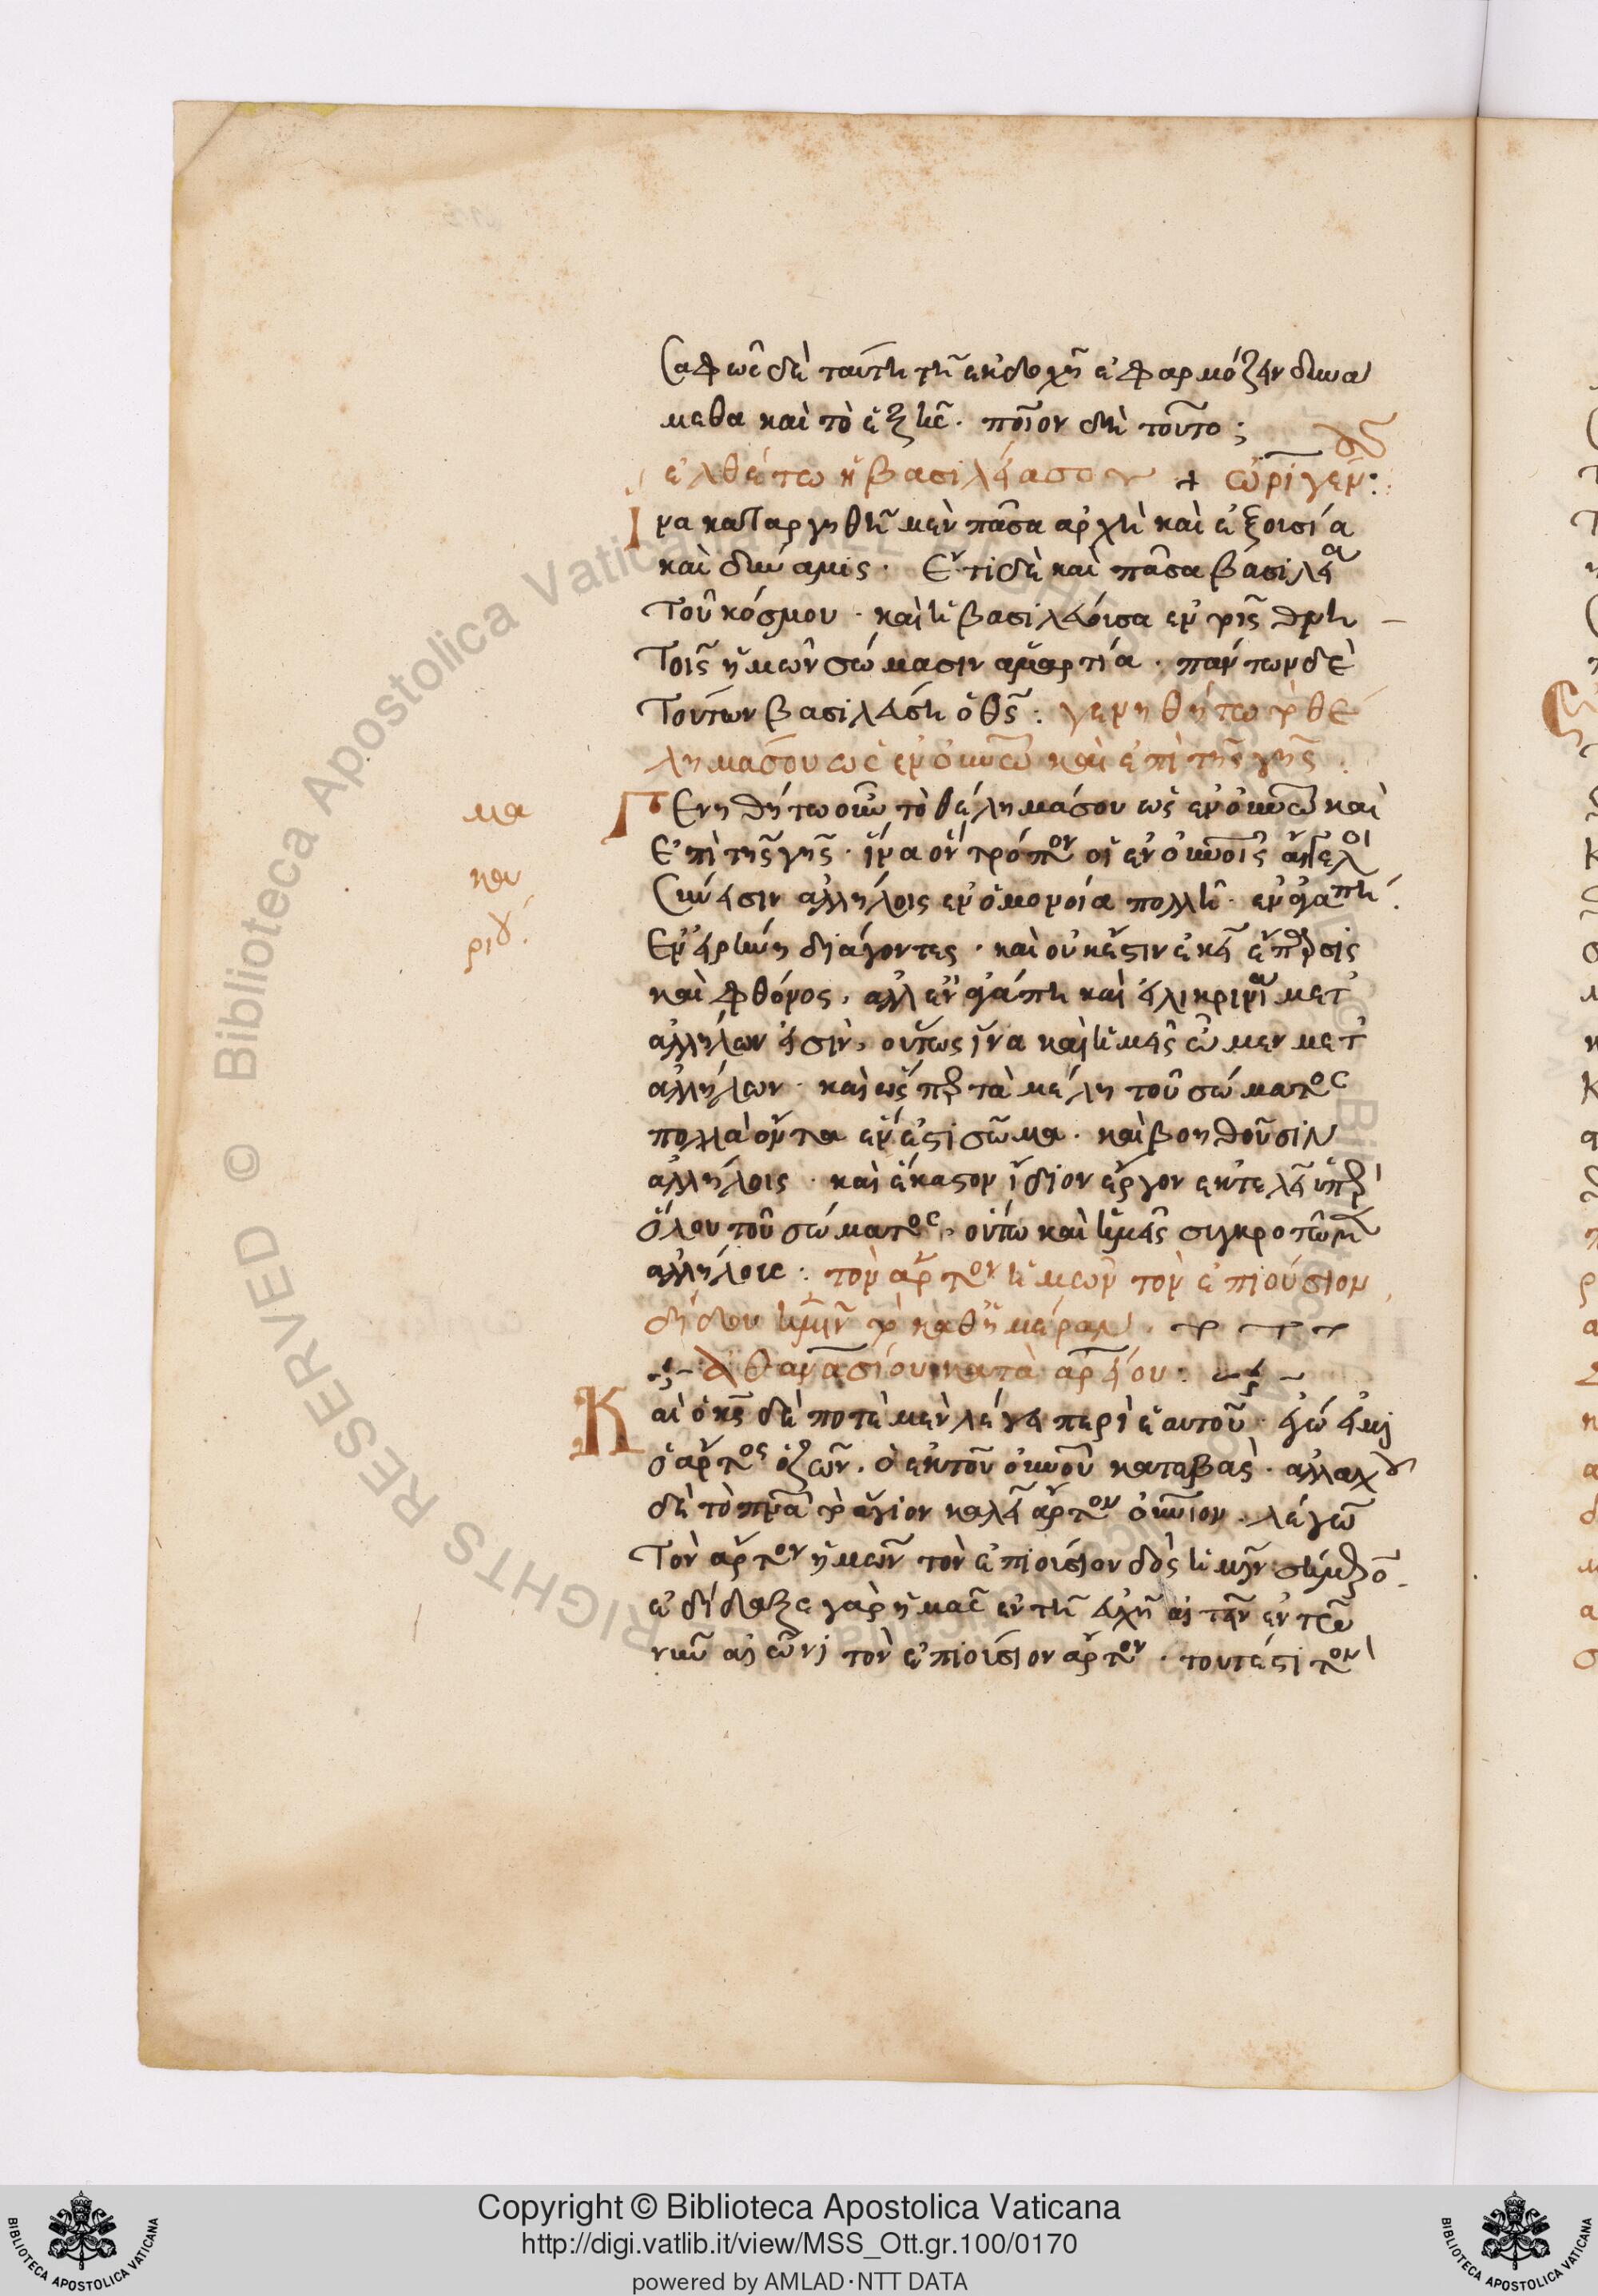 Σαφῶς δὲ ταύτη τῆ ἐκδοχῆ ἐφαρμόζειν δυνά
μεθα καὶ τὸ ἑξῆς· ποῖον δὴ τοῦτο;
ἐλθέτω ἡ βασιλείασου + ὠριγέν:
Ἵνα καταργηθῆ μὲν πᾶσα ἀρχὴ καὶ ἐξουσία
καὶ δύναμις· Ἔτι δὲ καὶ πᾶσα βασιλεία
Τοῦ κόσμου· καὶ ἡ βασιλεύουσα ἐν τοῖς θνη
Τοῖς ἡμῶν σώμασιν ἁμαρτία· πάντων δὲ
Τούτων βασιλεύση ὁ θς: γενηθήτω τὸ θέ
λημάσου ὡς ἐν οὐνῶ καὶ ἐπὶ τῆς γῆς:
μα
κα
ριου
Γενηθήτω οὖν τὸ θέλημάσου ὡς ἐν οὐνῶ καὶ
Ἐπὶ τῆς γῆς· ἵνα ὃν τρόπον οἱ ἐν οὐνοῖς ἄγγελοι
Σύνεισιν ἀλλήλοις ἐν ὁμονοία πολλῆ· ἐν ἀγάπη
Ἐν εἰρήνη διάγοντες· καὶ οὐκ ἔστιν ἐκεῖ
καὶ φθόνος, ἀλλ ἐν ἀγάπη καὶ εἰλικρινεία μετ
ἀλλήλων εἰσὶν, οὕτως ἵνα καὶ ἡμεῖς ὦμεν μετ
ἀλλήλων· καὶ ὥσπερ τὰ μέλη τοῦ σώματος
πολλὰ ὄντα ἕν ἐστι σῶμα· καὶ βοηθοῦσιν
ἀλλήλοις· καὶ ἕκαστον ἴδιον ἔργον ἐκτελεῖ ὑπὲρ
ὅλου τοῦ σώματος, οὕτω καὶ ἡμεῖς συγκροτῶμεν
ἀλλήλοις: τὸν ἄρτον ἡμῶν τὸν ἐπιούσιον
δίδου ἡμῖν τὸ καθημέραν·
Ἀθανασίου κατὰ ἀρείου:
Καὶ ὁ κς δὲ ποτὲ μὲν λέγει περὶ ἑαυτοῦ· ἐγώ εἰμι
ὁ ἄρτος ὁ ζῶν, ὁ ἐκ τοῦ οὐνοῦ καταβὰς· ἀλλαχοῦ
δὲ τὸ πνα τὸ ἅγιον καλεῖ ἄρτον οὐνιον· λέγων
Τὸν ἄρτον ἡμῶν τὸν ἐπιούσιον δὸς ἡμῖν σήμερον·
ἐδίδαξε γὰρ ἡμᾶς ἐν τῆ εὐχῆ αἰτεῖν ἐν τῶ
νῦν αἰῶνι τὸν ἐπιούσιον ἄρτον· τουτέστι τὸν
Copyright © Biblioteca Apostolica Vaticana
http://digi.vatlib.it/view/MSS_Ott.gr.100/0170
powered by AMLAD·NTT DATA